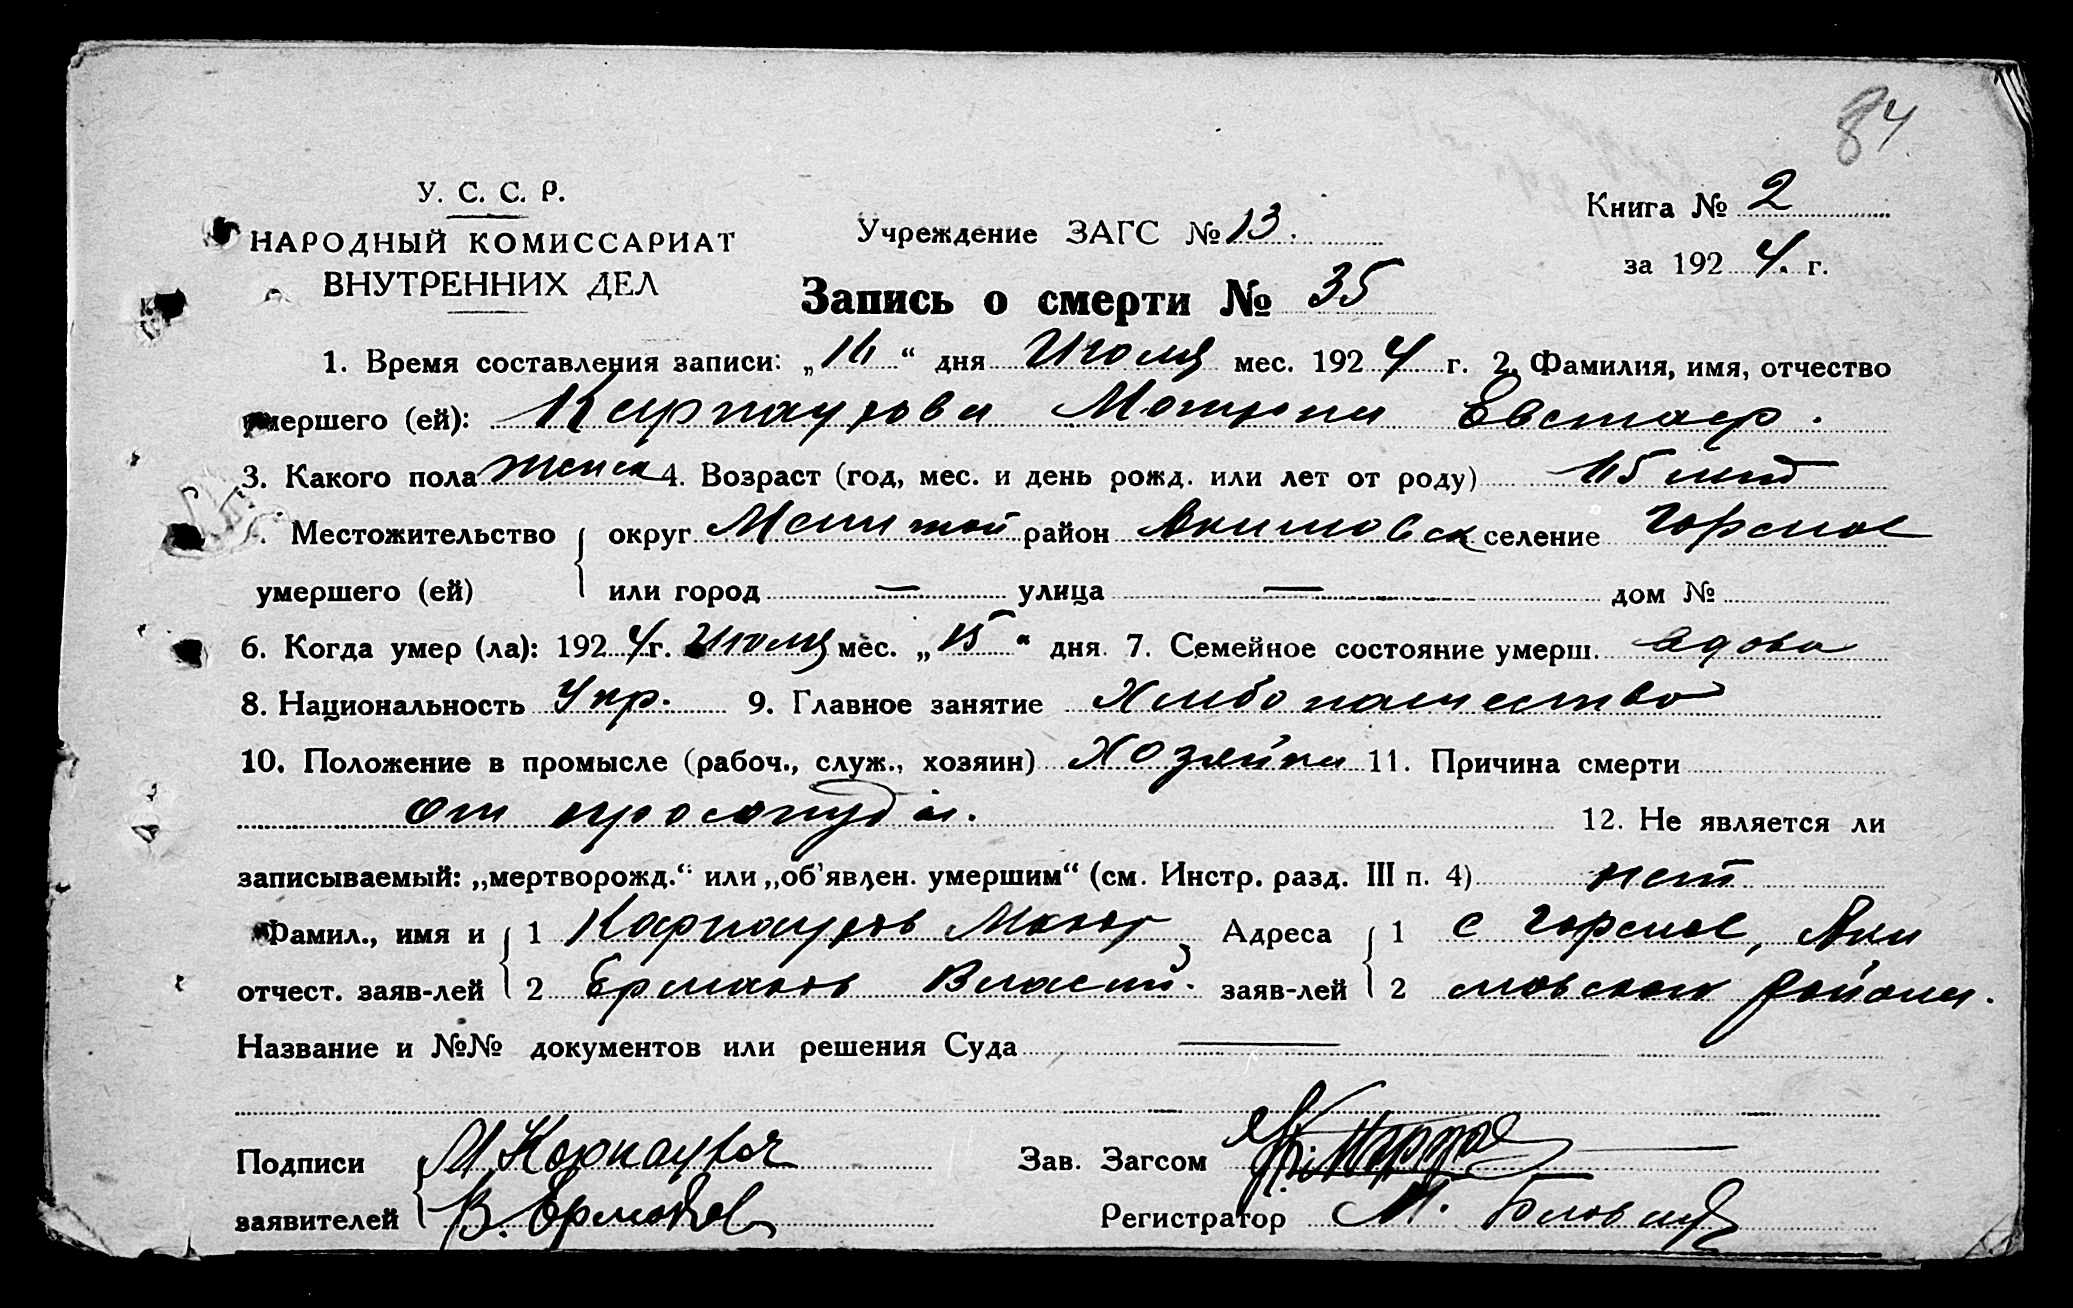 84
У. С. С. Р.
НАРОДНЫЙ КОМИССАРИАТ
ВНУТРЕННИХ ДЕЛ
Учреждение ЗАГС № 13.
Книга № 2
за 1924. г.
Запись о смерти № 35
1. Время составления записи: „16“ дня Июля мес. 1924 г. 2. Фамилия, имя, отчество
умершего (ей): Карнаухова Матрена Евстаф.
3. Какого пола женск 4. Возраст (год, мес. и день рожд. или лет от роду) лет
Местожительство округ Мелитпой район Акимовск селение Горелое
умершего (ей) или город — улица — дом №
6. Когда умер (ла): 1924 г. Июля мес. „15“ дня 7. Семейное состояние умерш. вдова
8. Национальность Укр. 9. Главное занятие Хлебопашество
10. Положение в промысле (рабоч., служ., хозяин) хозяйка 11. Причина смерти
От простуды.
12. Не является ли
записываемый: „мертворожд.“ или „об’явлен. умершим“ (см. Инстр. разд. III п. 4) нет
Фамил., имя и 1 Карнаухов Адреса 1 с Горелое, Аки
отчест. заяв-лей 2 Ермаков Власий. заяв-лей 2 мовского района.
Название и №№ документов или решения Суда —
Подписи М Карнаухов Зав. Загсом
заявителей В. Ермаков Регистратор М.